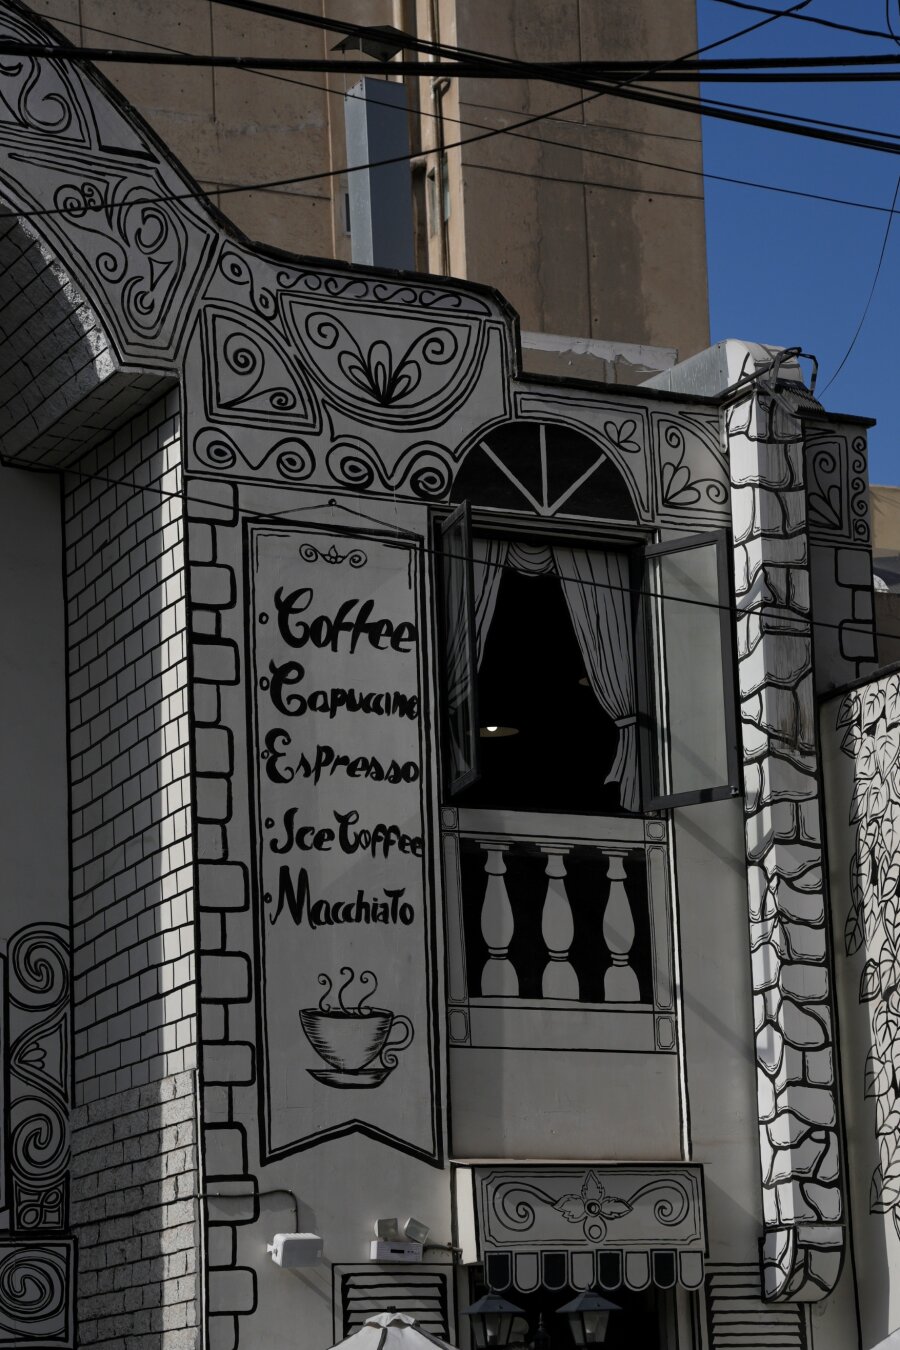 Coffee
Capuccino
Espresso
Ice Coffee
Macchiato